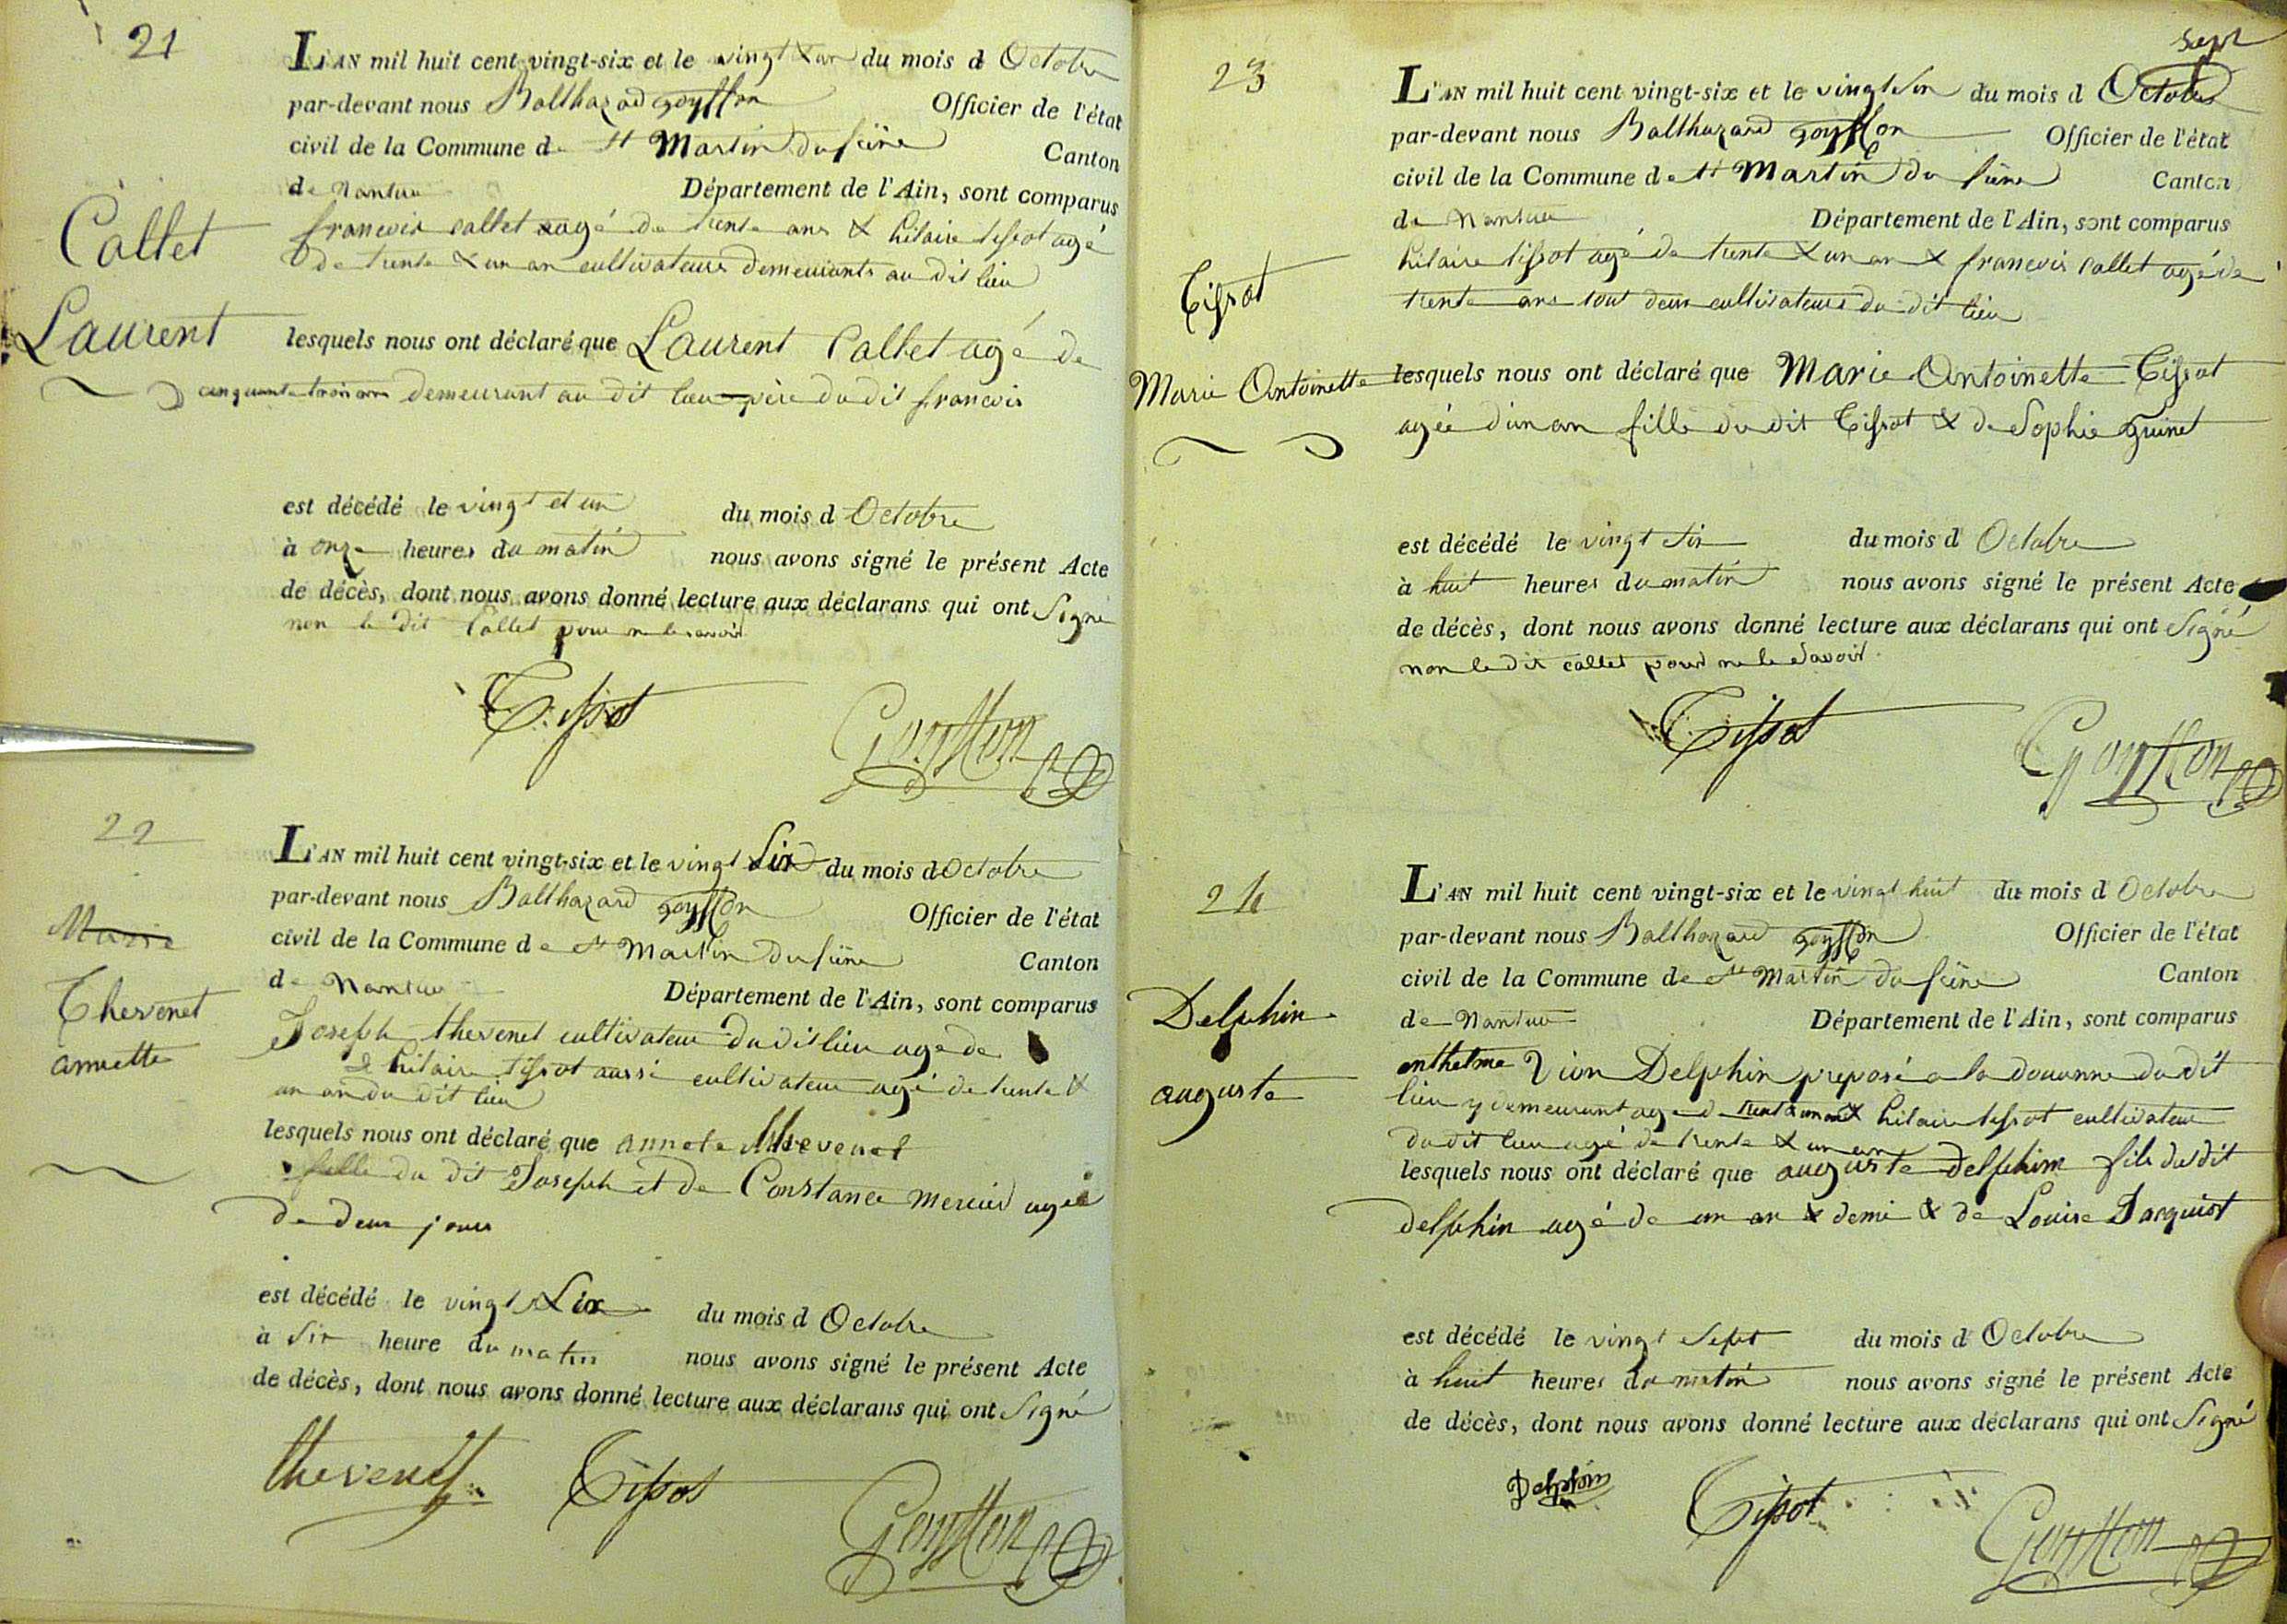 21
L'AN mil huit cent vingt-six et le vingt & un du mois d Octobre
par-devant nous Balthazard goyffon Officier de l'état
civil de la Commune de St Martin du frêne Canton
de Nantua Département de l'Ain, sont comparus
Callet
francois callet agé de trente ans & hilaire tissot agé
de trente & un an cultivateurs demeurants au dit lieu
Laurent
lesquels nous ont déclaré que Laurent Callet agé de
cinquante trois ans demeurant au dit lieu père du dit francois
est décédé le vingt et un du mois d Octobre
à onze heures du matin nous avons signé le présent Acte
de décès, dont nous avons donné lecture aux déclarans qui ont Signé
non le dit Callet pour ne le savoir
Tissot Goyffon
22
L'AN mil huit cent vingt-six et le vingt Six du mois d Octobre
par-devant nous Balthazard goyffon Officier de l'état
civil de la Commune de St Martin du frêne Canton
de Nantua Département de l'Ain, sont comparus
Marie
Thevenet
annette
Joseph thevenet cultivateur du dit lieu agé de
& hilaire tissot aussi cultivateur agé de trente &
un an du dit lieu
lesquels nous ont déclaré que annete thevenet
fille du dit Joseph et de Constance mercier agée
de deux jours
est décédé le vingt Six du mois d Octobre
à Six heure du matin nous avons signé le présent Acte
de décès, dont nous avons donné lecture aux déclarans qui ont Signé
thevenet Tissot Goyffon
23
sept
L'AN mil huit cent vingt-six et le vingt Six du mois d Octobre
par-devant nous Balthazard goyffon Officier de l'état
civil de la Commune de St Martin du frêne Canton
de Nantua Département de l'Ain, sont comparus
Tissot
hilaire tissot agé de trente & un an & francois callet agé de
trente ans tout deux cultivateurs du dit lieu
Marie Antoinette
lesquels nous ont déclaré que Marie Antoinette Tissot
agée d'un an fille du dit Tissot & de Sophie guinet
est décédé le vingt Six du mois d Octobre
à huit heures du matin nous avons signé le présent Acte
de décès, dont nous avons donné lecture aux déclarans qui ont Signé
non le dit callet pour ne le Savoir
Tissot Goyffon
24
L'AN mil huit cent vingt-six et le vingt huit du mois d Octobre
par-devant nous Balthazard goyffon Officier de l'état
civil de la Commune de St Martin du frêne Canton
de Nantua Département de l'Ain, sont comparus
Delphin
auguste
anthelme Vion Delphin preposé a la douanne du dit
lieu y demeurant agé de trente & un an & hilaire tissot cultivateur
du dit lieu agé de trente & un an
lesquels nous ont déclaré que auguste Delphin fils du dit
delphin agé de un an & demi & de Louise Jacquiot
est décédé le vingt Sept du mois d Octobre
à huit heures du matin nous avons signé le présent Acte
de décès, dont nous avons donné lecture aux déclarans qui ont Signé
Delphin Tissot Goyffon